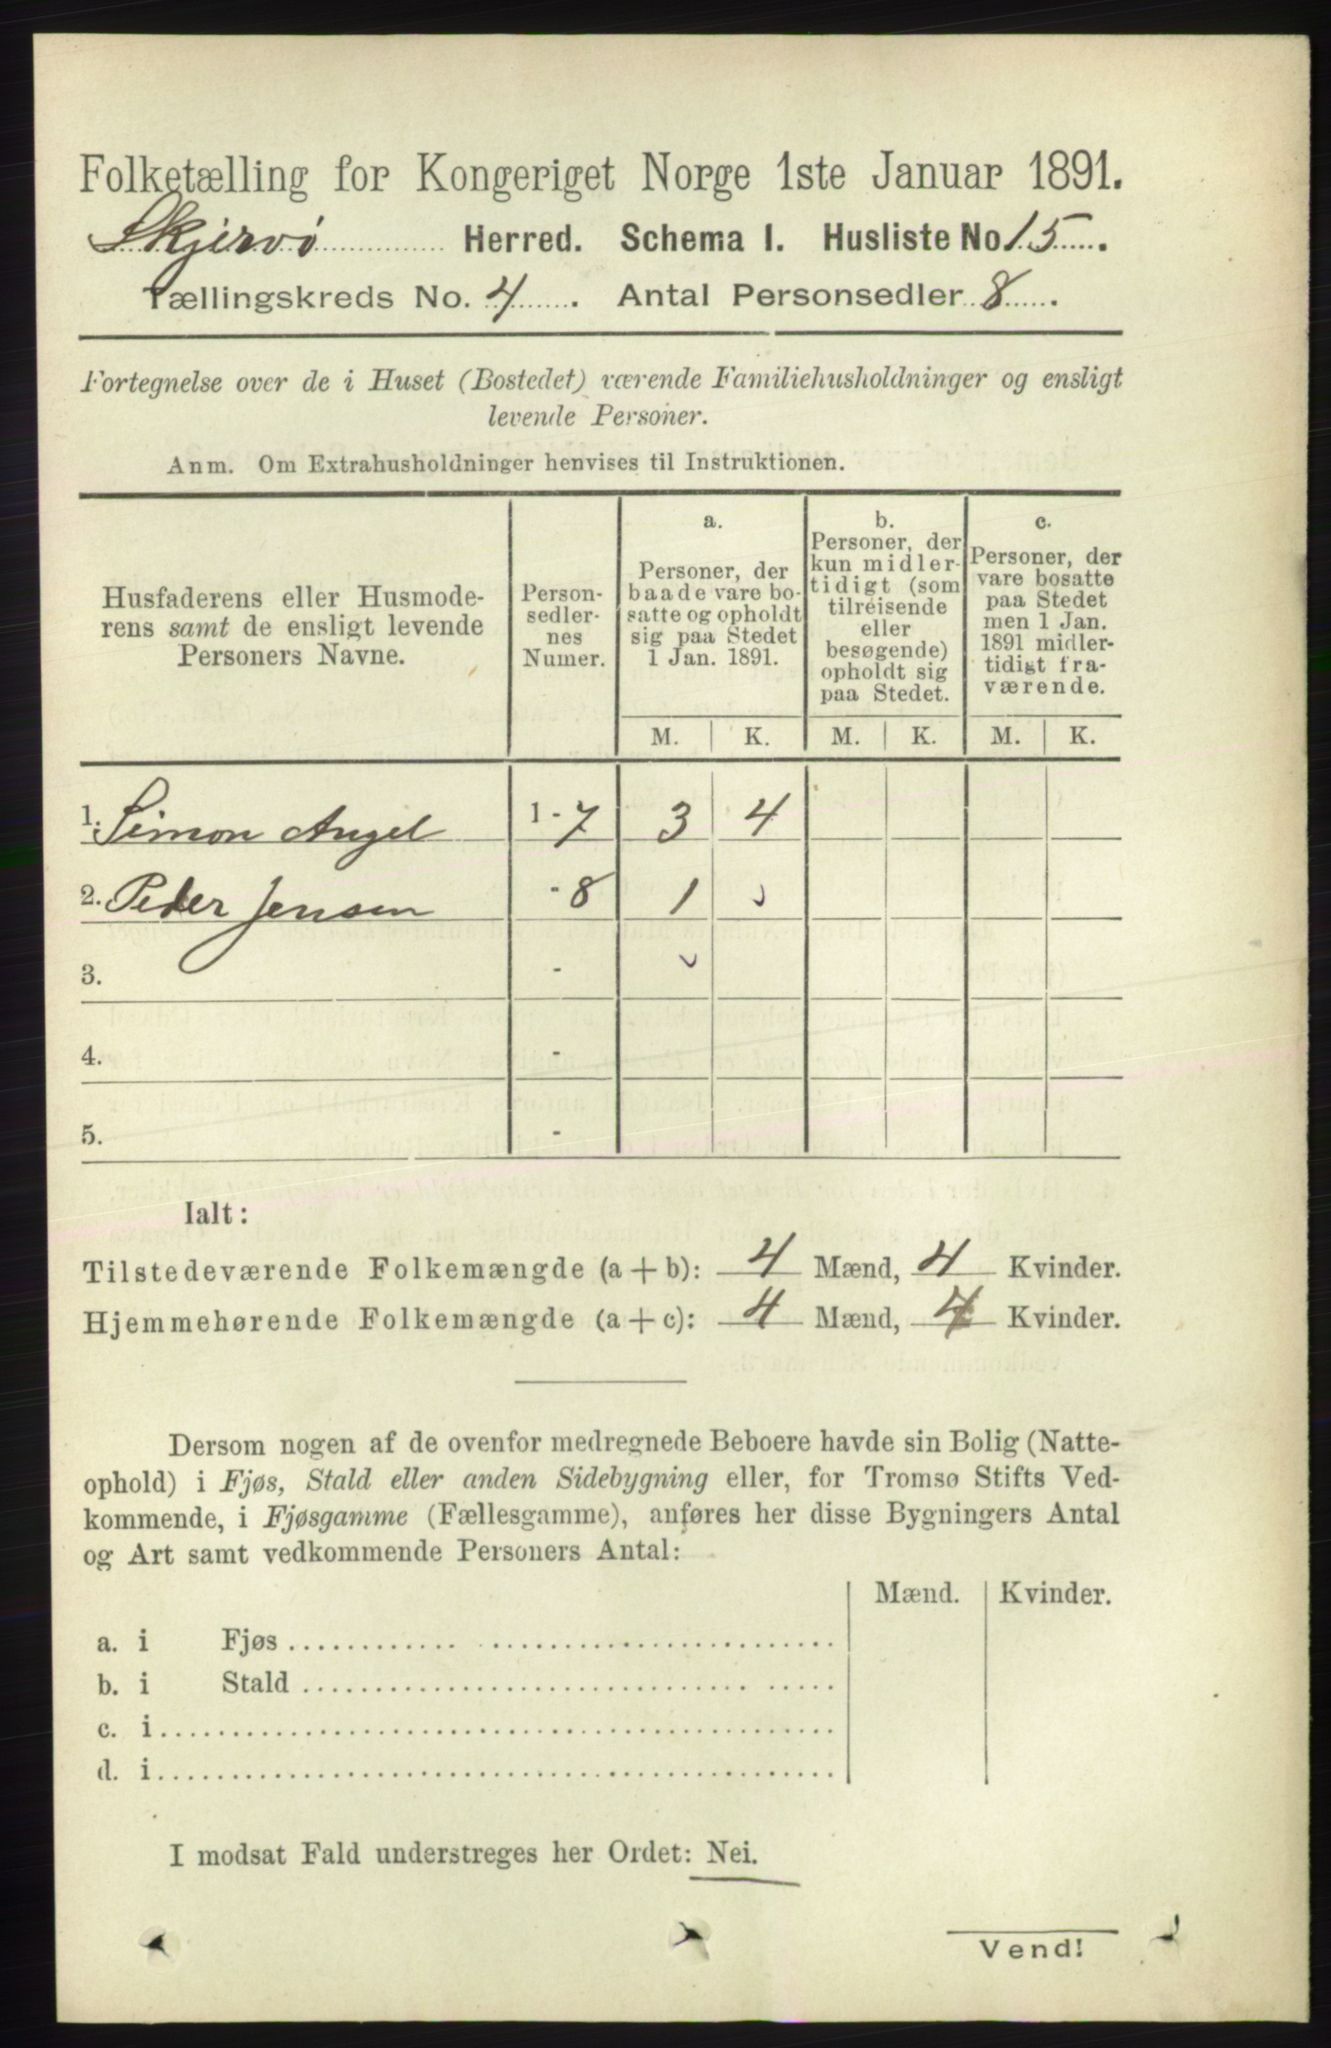 Folketælling for Kongeriget Norge 1ste Januar 1891.
Skjervø Herred. Schema I. Husliste No 15.
Tællingskreds No. 4. Antal Personsedler 8.
Fortegnelse over de i Huset (Bostedet) værende Familiehusholdninger og ensligt
levende Personer.
Anm. Om Extrahusholdninger henvises til Instruktionen.
Husfaderens eller Husmode-
rens samt de ensligt levende
Personers Navne.
Person-
sedler-
nes
Numer.
a.
Personer, der
baade vare bo-
satte og opholdt
sig paa Stedet
1 Jan. 1891.
b.
Personer, der
kun midler-
tidigt (som
tilreisende
eller
besøgende)
opholdt sig
paa Stedet.
c.
Personer, der
vare bosatte
paa Stedet
men 1 Jan.
1891 midler-
tidigt fra-
værende.
M. K. M. K. M. K.
1. Simon Angel 1-7 3 4
2. Peder Jensen -8 1
3. -
4. -
5. -
Ialt:
Tilstedeværende Folkemængde (a + b): 4 Mænd, 4 Kvinder.
Hjemmehørende Folkemængde (a + c): 4 Mænd, 4 Kvinder.
Dersom nogen af de ovenfor medregnede Beboere havde sin Bolig (Natte-
ophold) i Fjøs, Stald eller anden Sidebygning eller, for Tromsø Stifts Ved-
kommende, i Fjøsgamme (Fællesgamme), anføres her disse Bygningers Antal
og Art samt vedkommende Personers Antal:
Mænd. Kvinder.
a. i Fjøs
b. i Stald
c. i
d. i
I modsat Fald understreges her Ordet: Nei.
Vend!